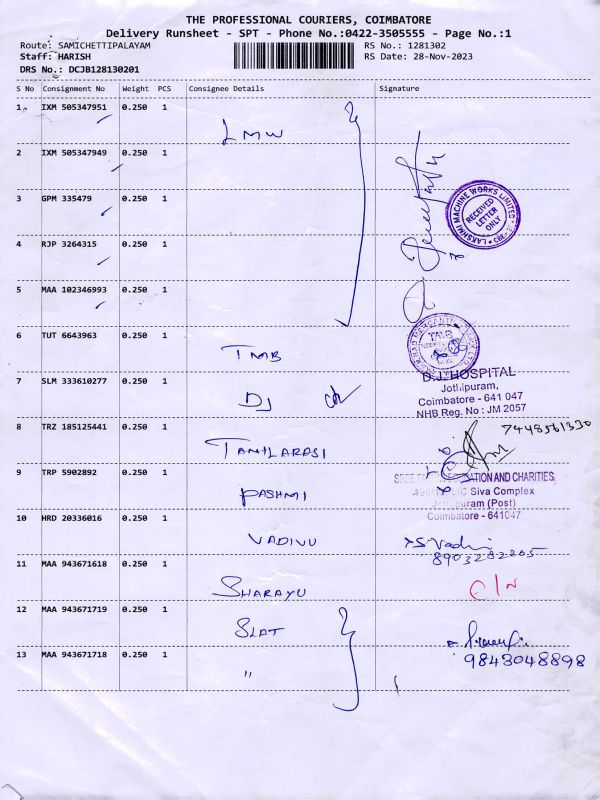 THE PROFESSIONAL COURIERS, COIMBATORE
Delivery Runsheet - SPT - Phone No.:0422-3505555 - Page No.:1
Route: SAMICHETTIPALAYAM RS No.: 1281302
Staff: HARISH RS Date: 28-Nov-2023
DRS No.: DCJB128130201
S No Consignment No Weight PCS Consignee Details Signature
1 IXM 505347951 0.250 1
LMW
2 IXM 505347949 0.250 1
3 GPM 335479 0.250 1
LAKSHMI MACHINE WORKS LIMITED
RECEIVED
LETTER
ONLY
4 RJP 3264315 0.250 1
5 MAA 102346993 0.250 1
6 TUT 6643963 0.250 1
TMB
7 SLM 333610277 0.250 1
DJ
D.J. HOSPITAL
Jothipuram,
Coimbatore - 641 047
NHB Reg. No : JM 2057
8 TRZ 185125441 0.250 1
7448561330
TAMILARASI
9 TRP 5902892 0.250 1
AND CHARITIES
Siva Complex
(Post)
Coimbatore - 641047
PASHMI
10 HRD 20336016 0.250 1
VADIVU
8903282205
11 MAA 943671618 0.250 1
SHARAYU
12 MAA 943671719 0.250 1
SLAT
13 MAA 943671718 0.250 1
9843048898
"